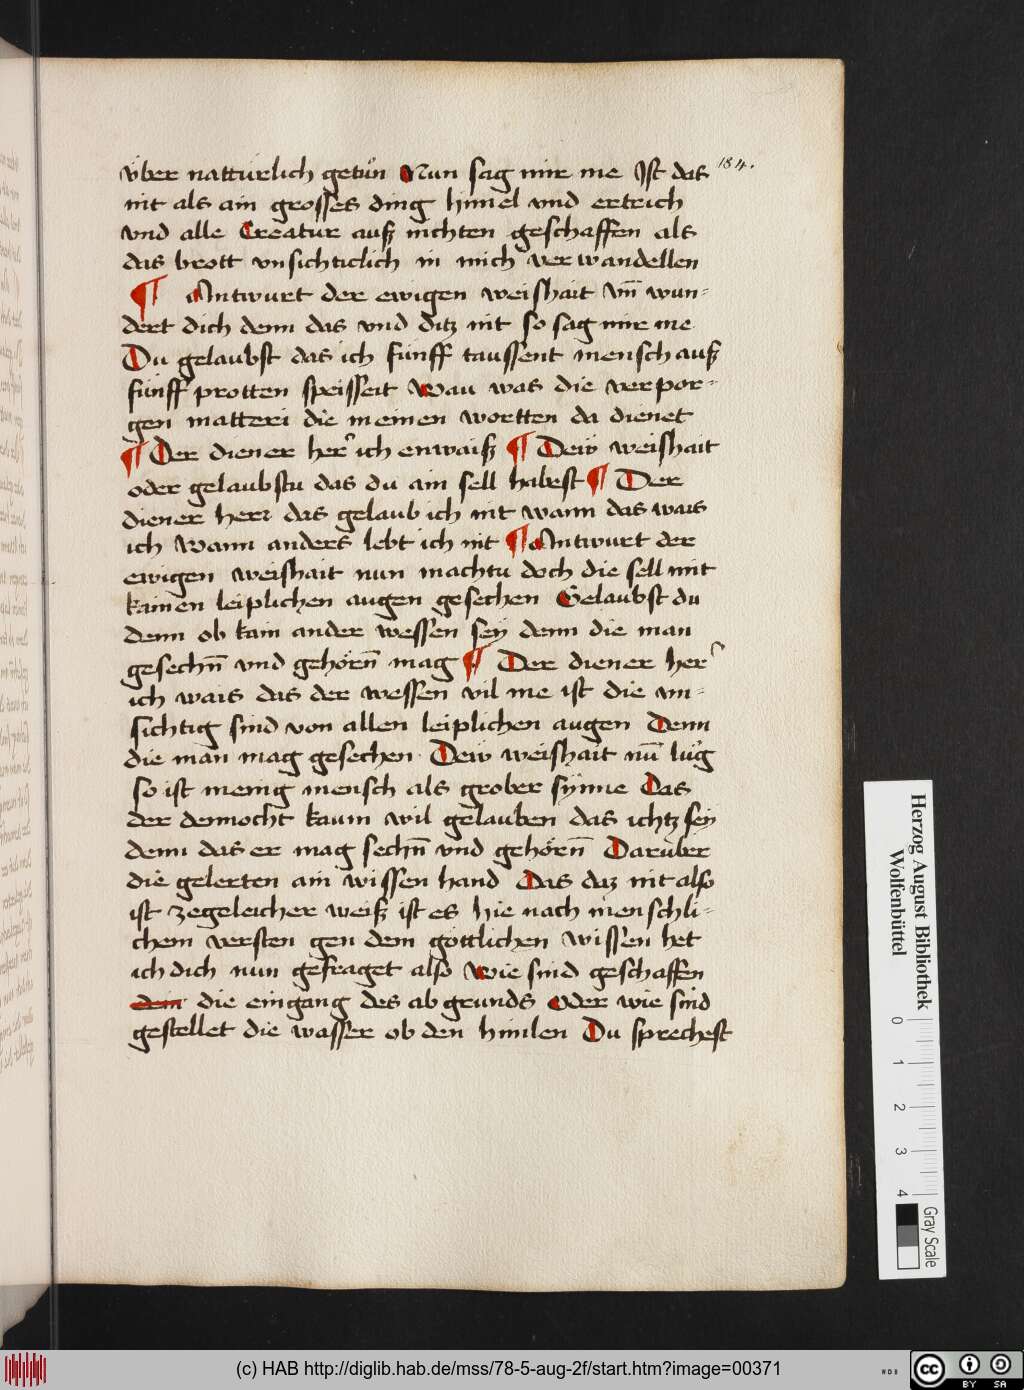 über nattürlich getůn Nun sag mir me Ist das
184.
nit als ain grosses ding himel vnd ertrich
vnd alle Creatur auß nichten geschaffen als
das brott vnsichticlich in mich verwandellen
¶ Antwurt der ewigen weishait vn̄ wun-
dert dich denn das vnd ditz nit so sag mir me
Du gelaubst das ich fünff taussent mensch auß
fünff protten speisseit wau was die verpor-
gen matteri die meinen wortten da dienet
¶ Der diener her ich enwaiß ¶ Dew weishait
oder gelaubstu das du ain sell habest ¶ Der
diener herr das gelaub ich nit wann das wais
ich wann anders lebt ich nit ¶ Antwurt der
ewigen weishait nun machtu doch die sell mit
kainen leiplichen augen gesechen Gelaubst du
denn ob kain ander wessen sey denn die man
gesechn̄ vnd gehörn̄ mag ¶ Der diener her
ich wais das der wessen vil me ist die vn-
sichtig sind von allen leiplichen augen Denn
die man mag gesechen Dew weishait nū lüg
so ist menig mensch als grober synne Das
der dennocht kaum wil gelauben das ichtz sey
denn das er mag sechn̄ vnd gehörn̄ Darüber
die gelerten ain wissen hand Das daz nit also
ist zegeleicher weiß ist es hie nach menschli-
chem versten gen dem göttlichen wissen het
ich dich nun gefraget also wie sind geschaffen
dein die eingang des abgrunds oder wie sind
gestellet die wasser ob den himlen Du sprechest
Herzog August Bibliothek
Wolfenbüttel
0 1 2 3 4
Gray Scale
(c) HAB http://diglib.hab.de/mss/78-5-aug-2f/start.htm?image=00371
WDB
cc BY SA